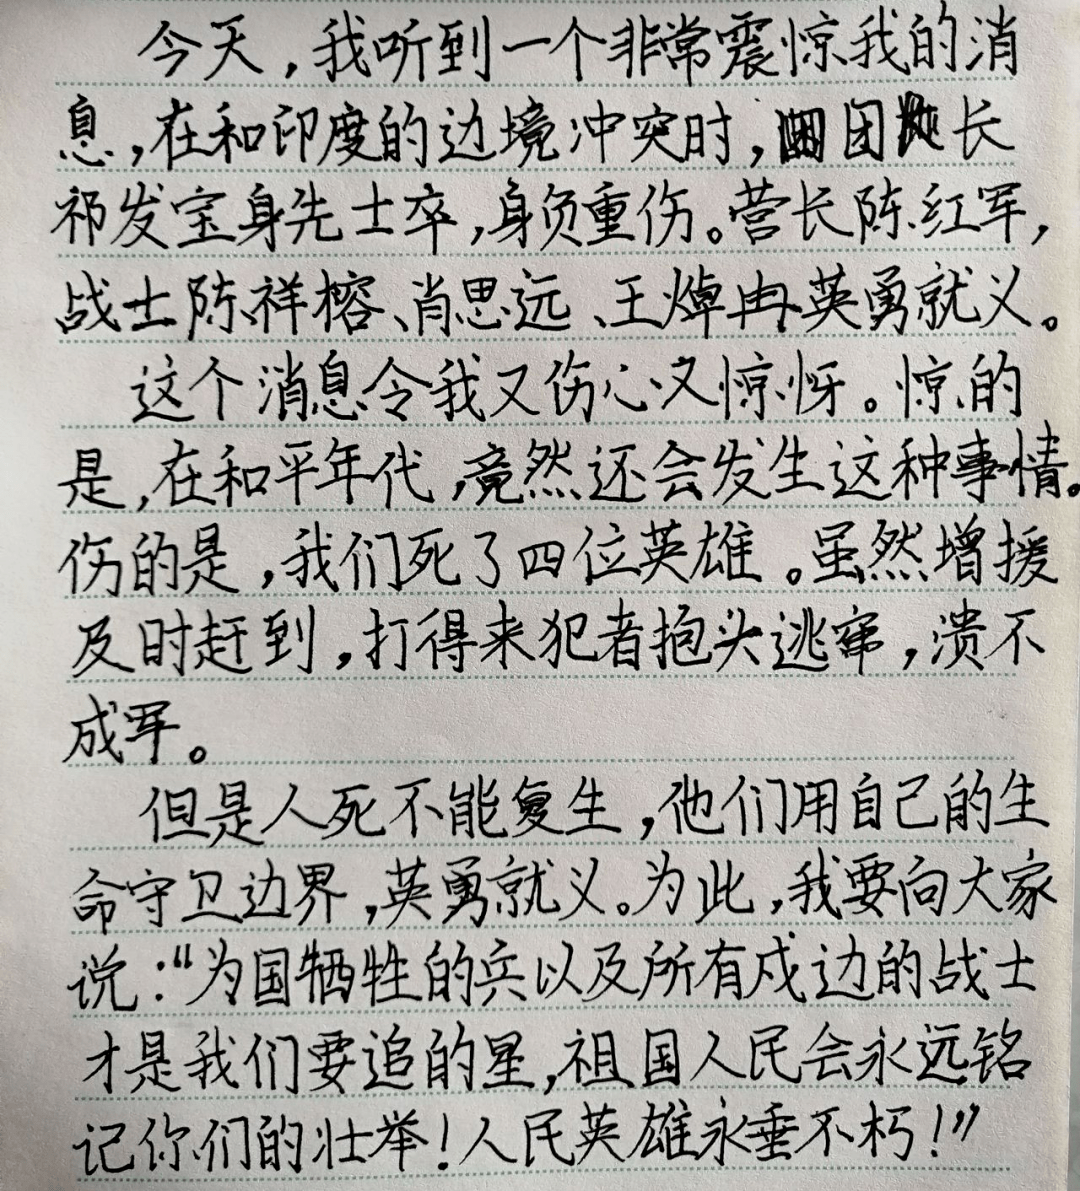 今天,我听到一个非常震惊我的消
息,在和印度的边境冲突时,团长
祁发宝身先士卒,身负重伤。营长陈红军,
战士陈祥榕、肖思远、王焯冉英勇就义。
这个消息令我又伤心又惊讶。惊的
是,在和平年代,竟然还会发生这种事情。
伤的是,我们死了四位英雄。虽然增援
及时赶到,打得来犯者抱头逃窜,溃不
成军。
但是人死不能复生,他们用自己的生
命守卫边界,英勇就义。为此,我要向大家
说:“为国牺牲的兵以及所有戍边的战士
才是我们要追的星,祖国人民会永远铭
记你们的壮举!人民英雄永垂不朽!”